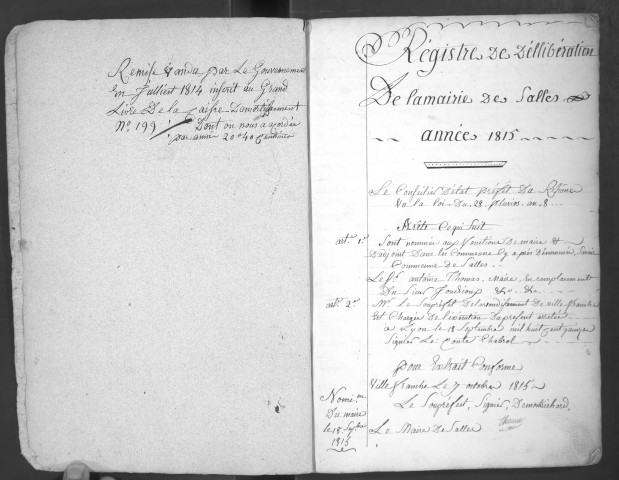 Remise & andu par Le Gouvernement
En Juillient 1814 inscrit au Grand
Livre De la Caisse Damortissement
No 199 / Dont on nous a acordée
par année 20 f 40 Centimes
Régistre De Délliberation
De lamairie De Salles
année 1815
Le Conseilier Détat prefet Du Rhône
Vu la loi Du 28 pluvios an 8
Arrête Cequi Suit
art. 1er
Sont nommée aux Fonctions De maire &
Dadjoint Dans les Communes Cy après Dénommée, Savoir
Commune De Salles
Le Sr antoine Thomas, Maire, en remplacement
Du Sieur
art. 2e
Mr Le Souprefet Delarondissement De ville franche
Est Chargée De l'exécution Duprésent arretée
a Lyon le 18 Septembre mil huit Cent quinze
Signiée Le Conte Chabrol
pour Extrait Conforme
Ville franche Le 7 octobre 1815
Le Souprefest, Signiée, Demonrichard
Le Maire De Salles
Nomi.on
Du maire
le 18 Septbre
1815